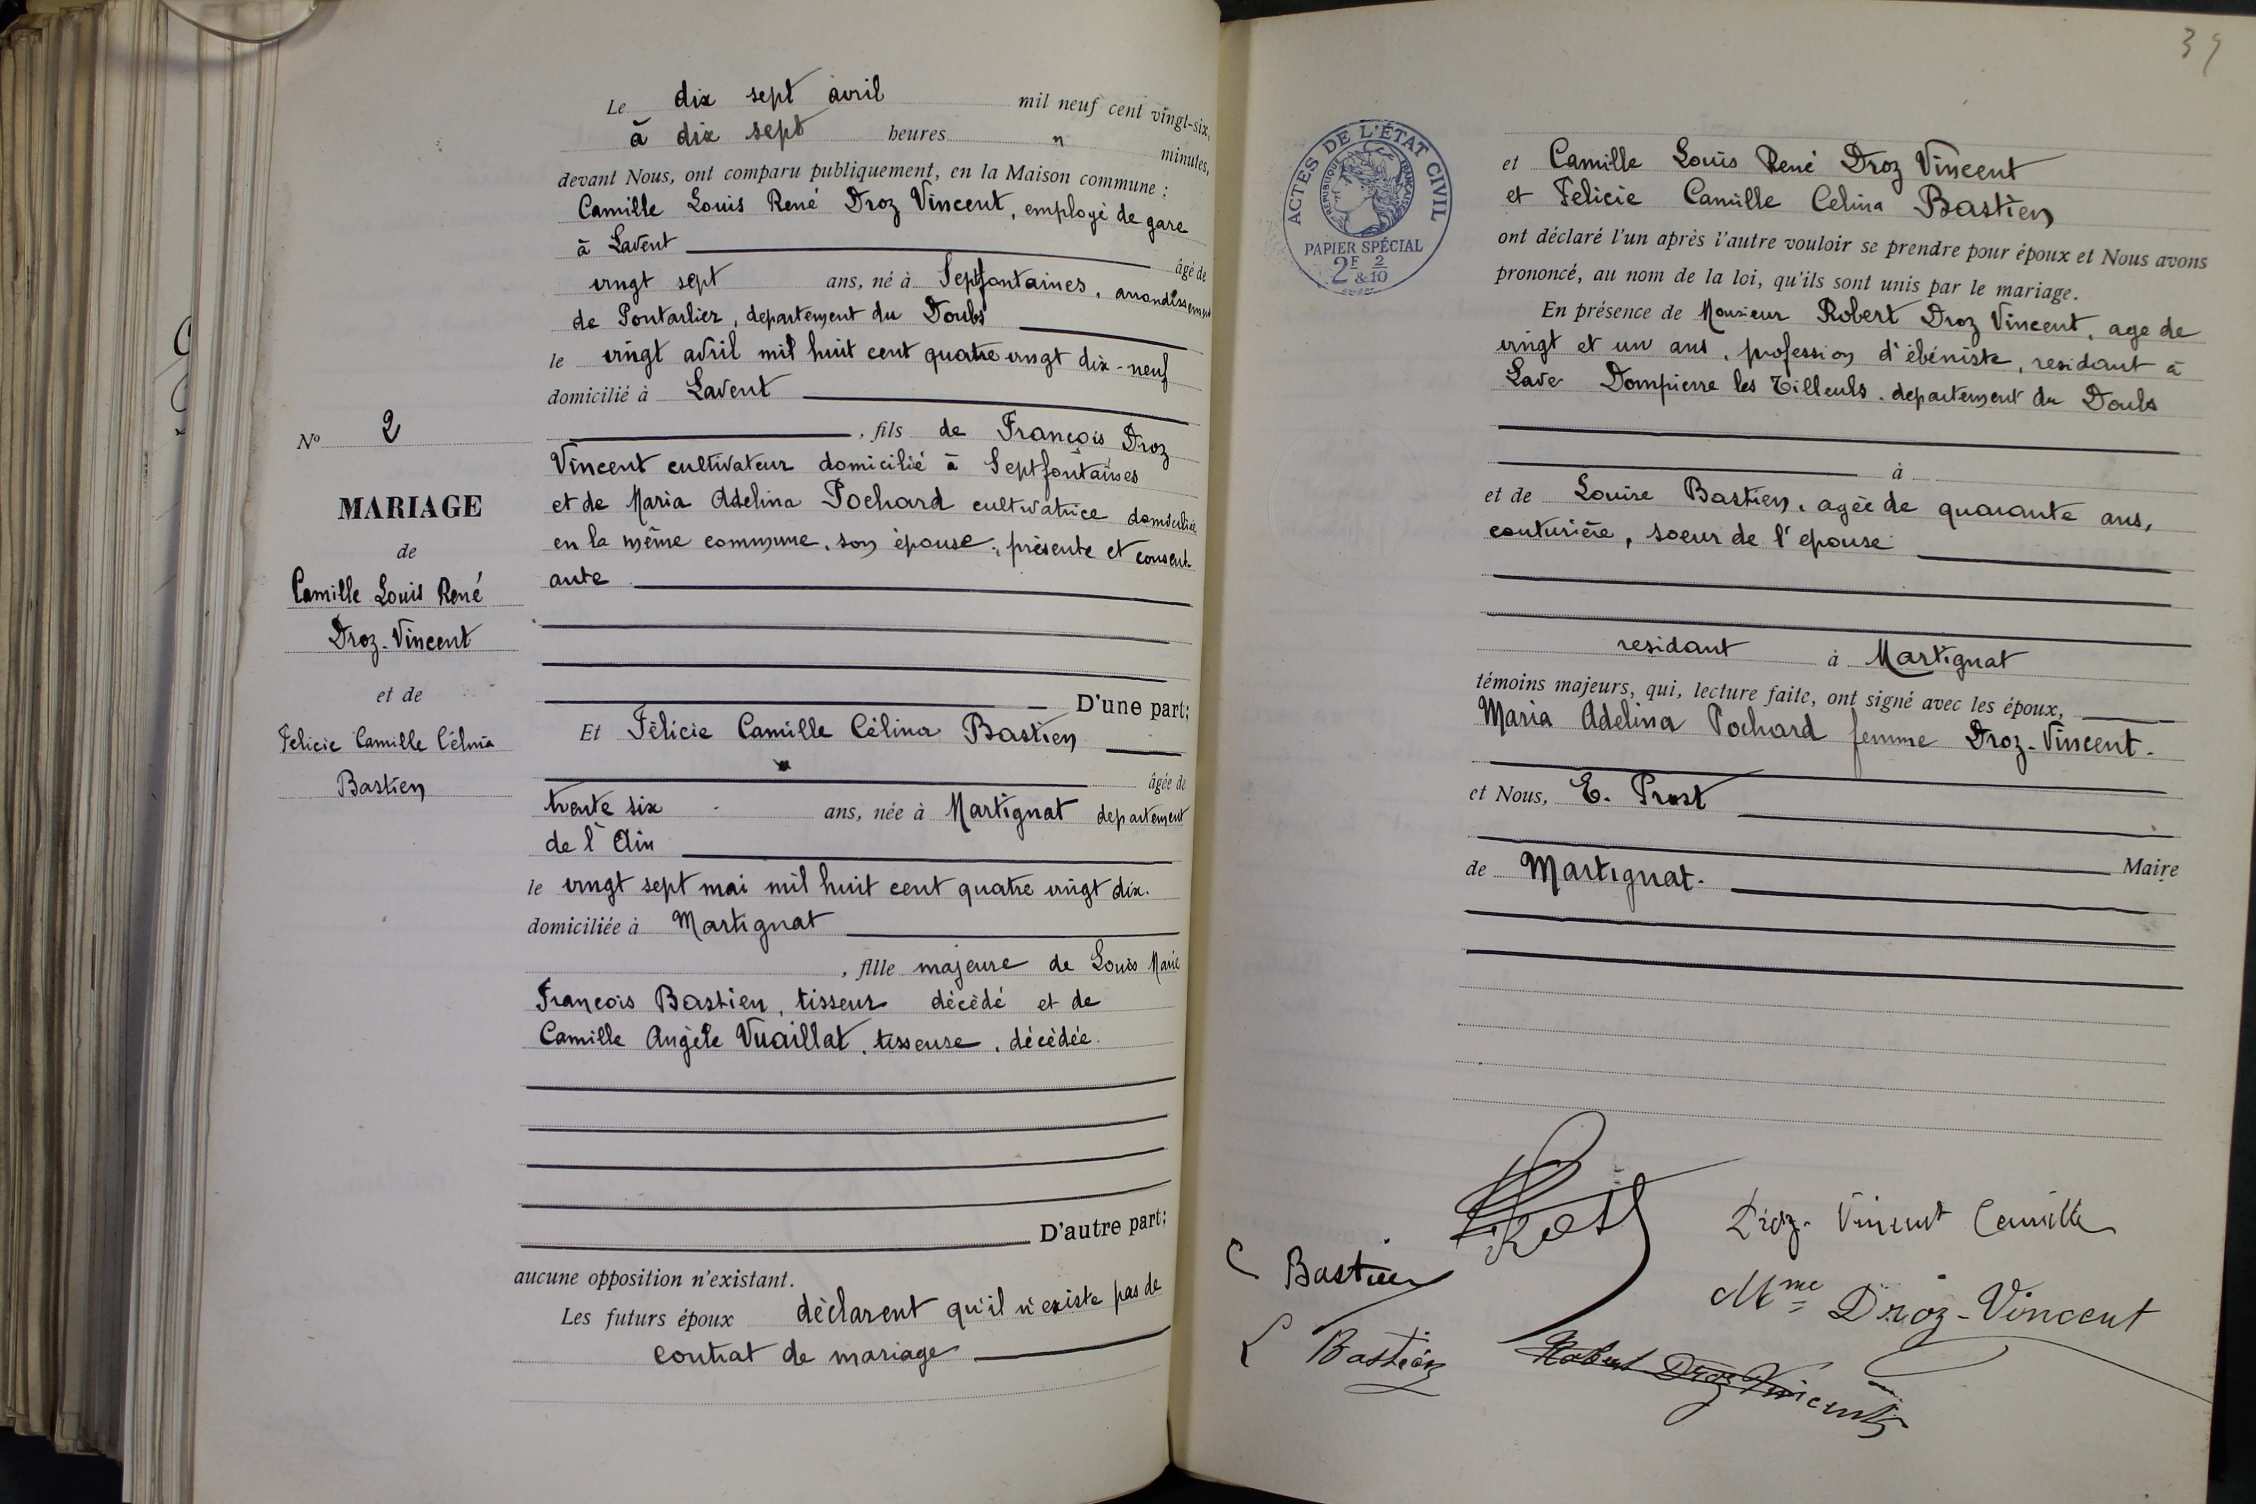 Le dix sept avril mil neuf cent vingt-six,
à dix sept heures " minutes,
devant Nous, ont comparu publiquement, en la Maison commune :
Camille Louis René Droz Vincent, employé de gare
à Lavent
âgé de
vingt sept ans, né à Septfontaines, arrondissement
de Pontarlier, departement du Doubs
le vingt avril mil huit cent quatre vingt dix-neuf
domicilié à Lavent
, fils de François Droz
Vincent cultivateur domicilié à Septfontaines
et de Maria Adelina Pochard cultivatrice domiciliée
en la même commune, son épouse, présente et consent-
ante
D'une part;
Et Félicie Camille Célina Bastien
âgée de
trente six ans, née à Martignat departement
de l'Ain
le vingt sept mai mil huit cent quatre vingt dix.
domiciliée à Martignat
, fille majeure de Louis Marie
François Bastien, tisseur décédé et de
Camille Angèle Vuaillat, tisseuse, décédée.
D'autre part;
aucune opposition n'existant.
Les futurs époux déclarent qu'il n'existe pas de
contrat de mariage
No 2
MARIAGE
de
Camille Louis René
Droz-Vincent
et de
Felicie Camille Célina
Bastien
39
ACTES DE L'ÉTAT CIVIL
REPUBLIQUE FRANÇAISE
PAPIER SPÉCIAL
2F & 2/10
et Camille Louis René Droz Vincent
et Felicie Camille Celina Bastien
ont déclaré l'un après l'autre vouloir se prendre pour époux et Nous avons
prononcé, au nom de la loi, qu'ils sont unis par le mariage.
En présence de Monsieur Robert Droz Vincent, age de
vingt et un ans, profession d'ébéniste, residant à
Dompierre les Tilleuls, departement du Doubs
à
et de Louise Bastien, agée de quarante ans,
couturière, soeur de l'epouse
residant à Martignat
témoins majeurs, qui, lecture faite, ont signé avec les époux,
Maria Adelina Pochard femme Droz-Vincent-
et Nous, E. Prost
Maire
de Martignat.
Prost
Droz-Vincent Camille
C Bastien
Mme Droz-Vincent
L Bastien
Robert Droz Vincent